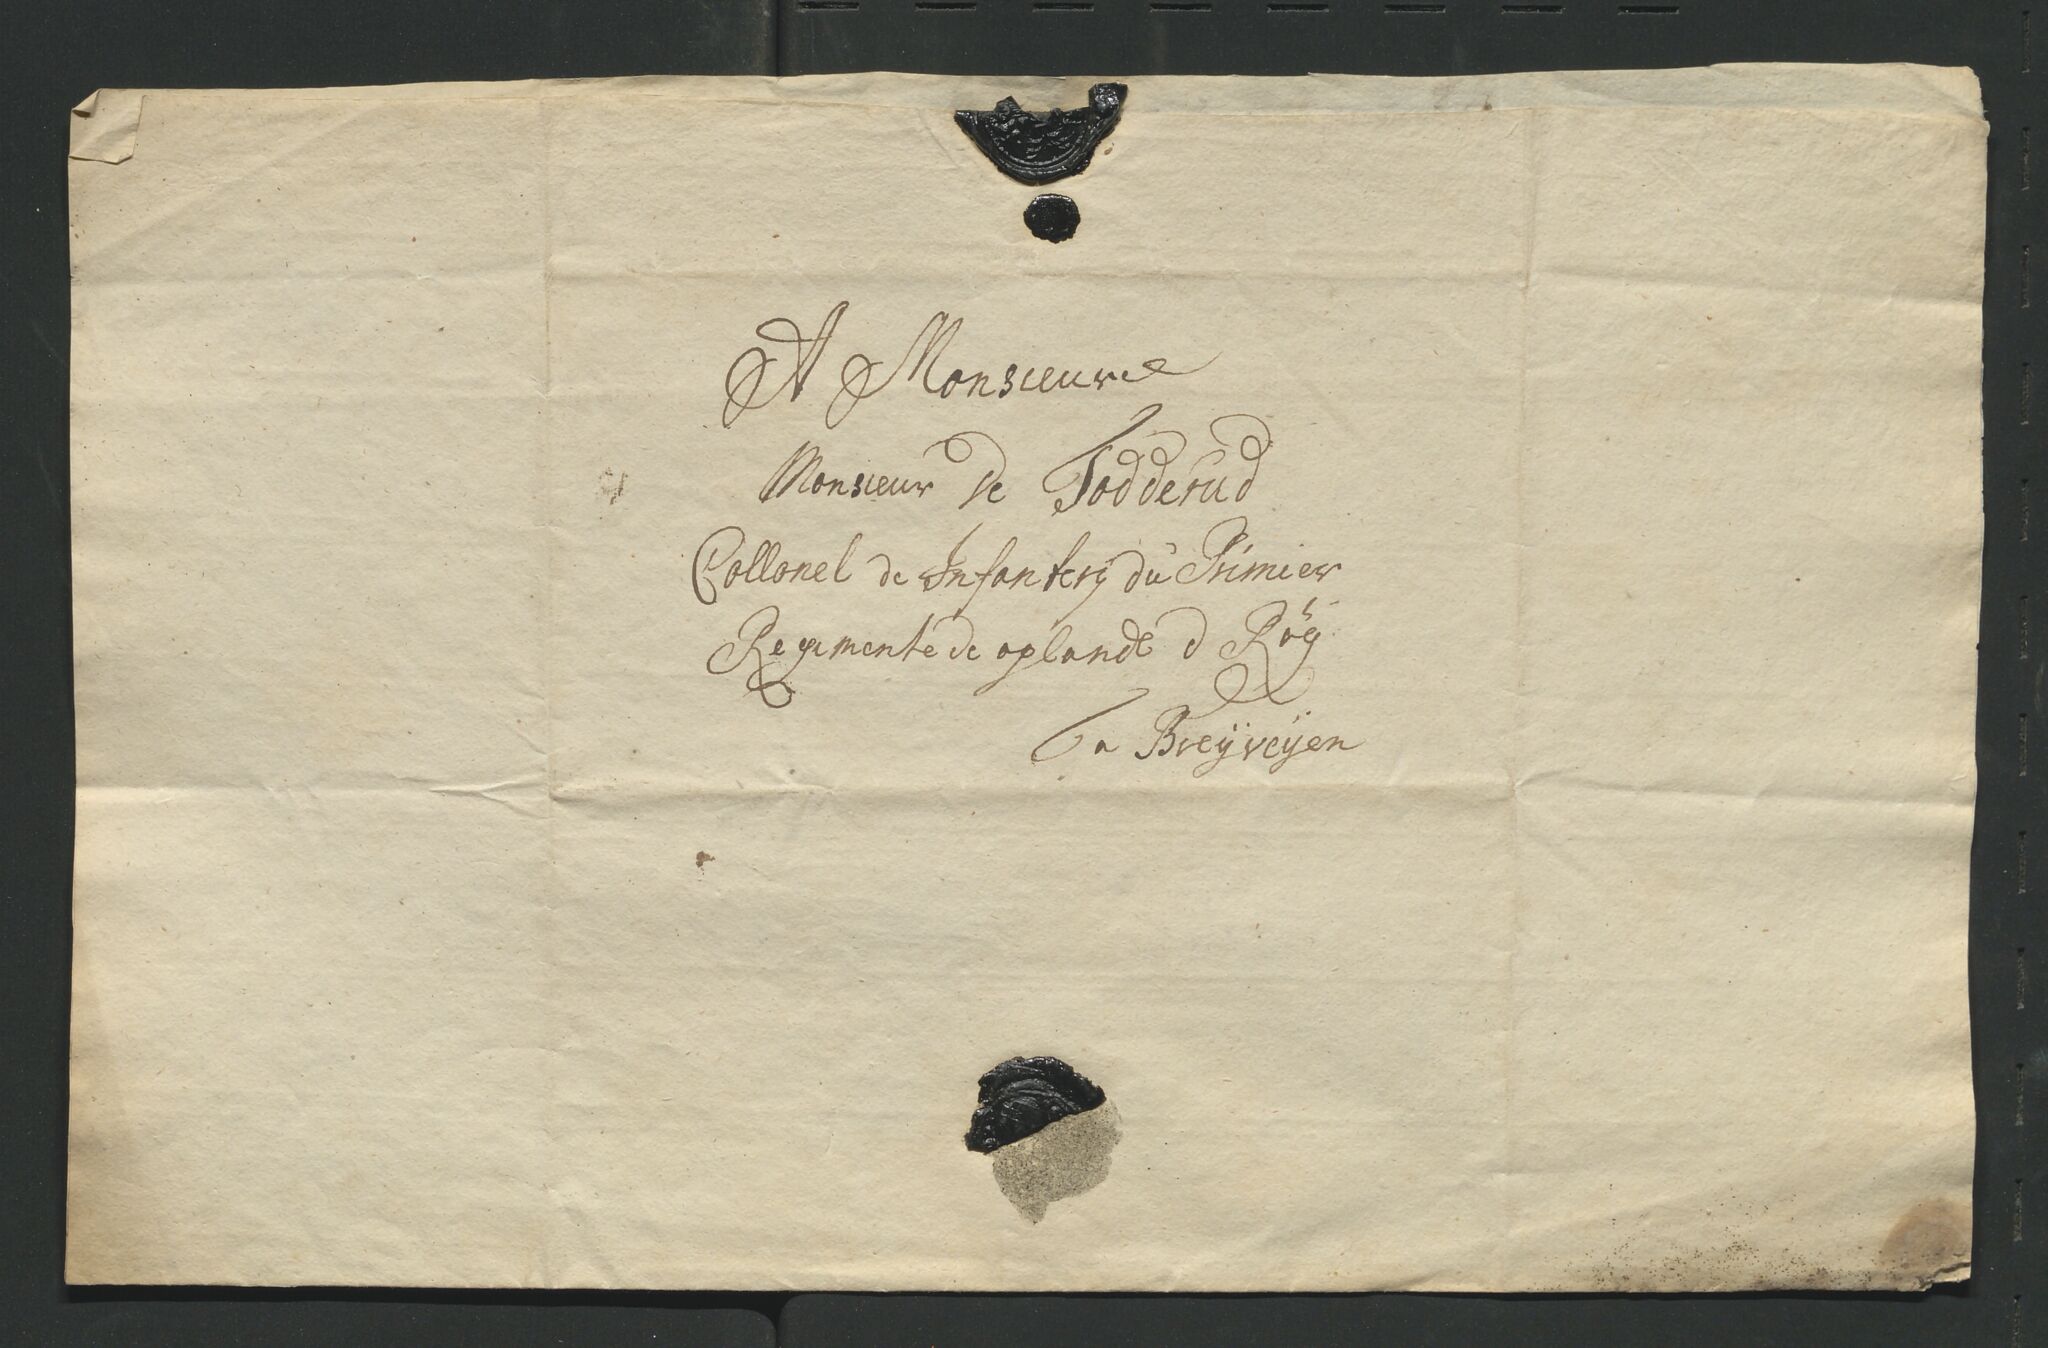 A Monsieur
Monsieur de Todderud
Collonel de Infantery du Primier
Regimente de oplande d Röy
Ta Breyveyen